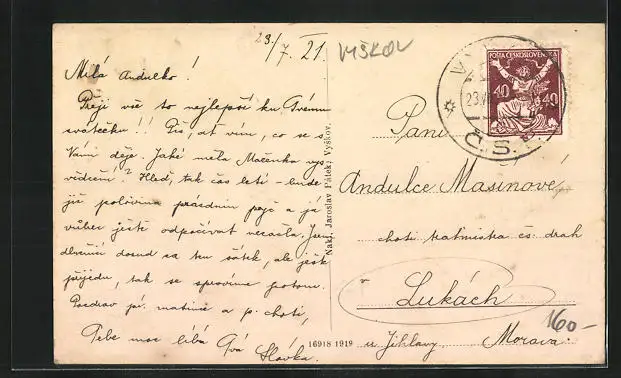 23/7. 21.
VYŠKOV
Milá Andulko!
Přeji vše to nejlepší ku Tvému
svátečku!! Piš, ať vím, co se s
Vámi děje. Jaké měla Mařenka vys
vědčení? Hleď, tak čas letí – bude
již polovina prázdnin pryč a já
vůbec ještě odpočívat nezačla. Jsem
dosud sa ten šátek, ale ještě
přijedu, tak se spravíme potom.
Pozdrav pí. matince a p. choti,
Tebe moc líbá Tvá Slávka.
Nakl. Jaroslav Pátek, Vyškov.
16918 1919
POŠTA ČESKOSLOVENSKÁ
40 40
VY
23.VII
ČSR
Paní
Andulce Mašínové,
choti čs. drah
Lukách
u Jihlavy, Morava.
160-